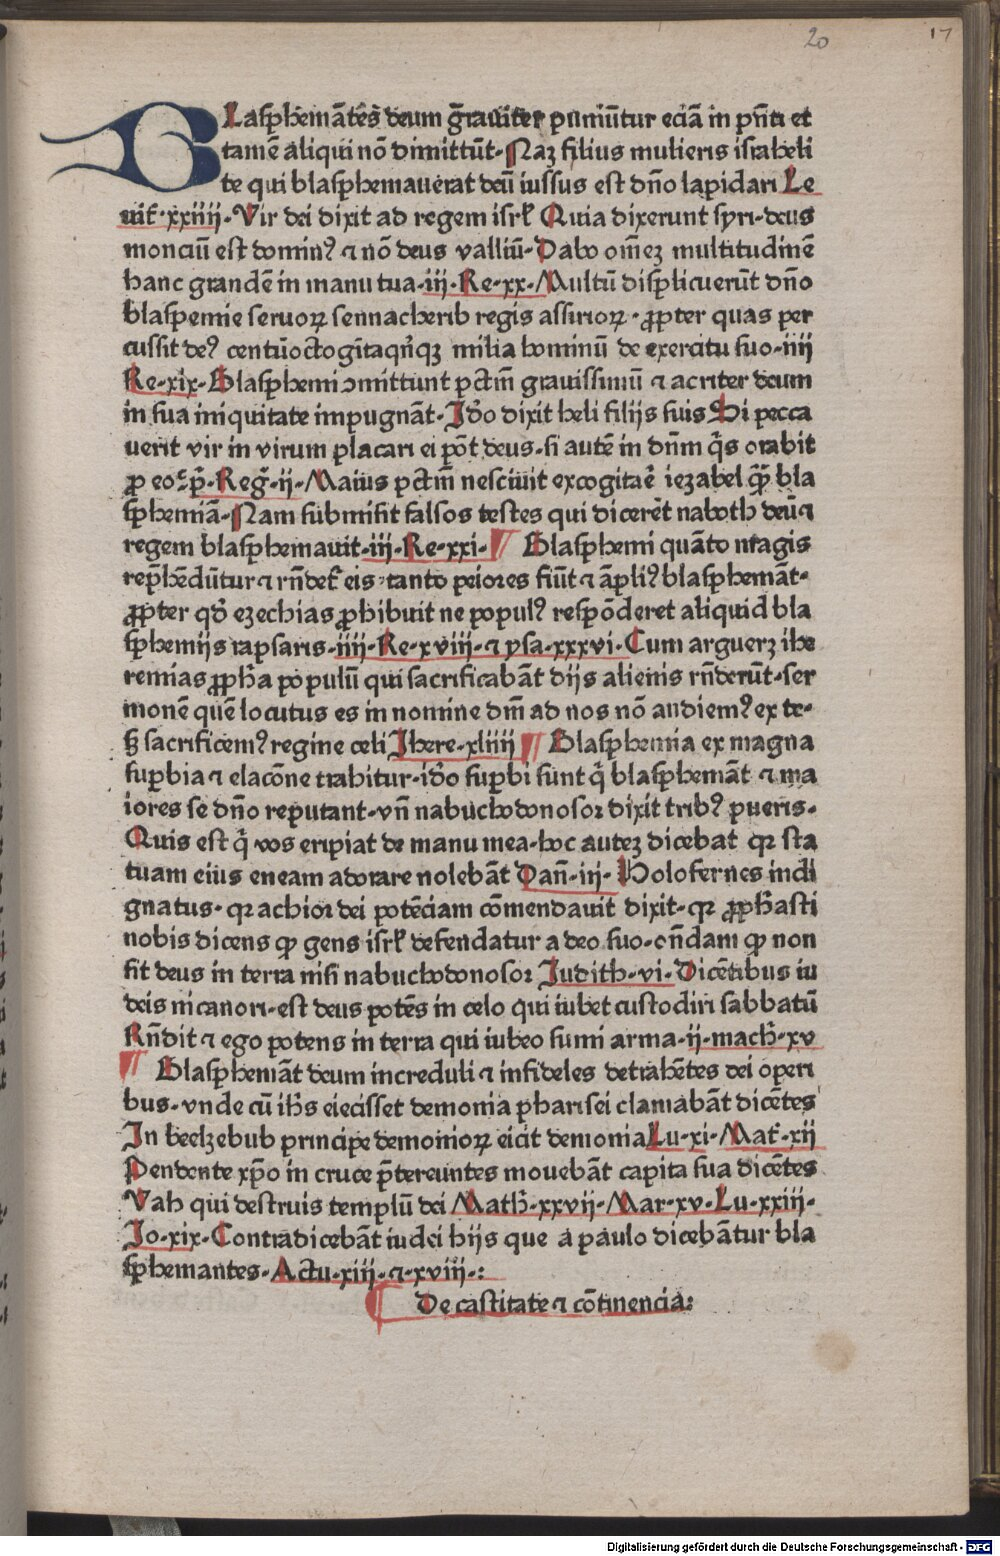 20 17
BLasphemātēs deum g̃rauiter puniūtur eciā in pñti et
tamē aliqui nō dimittūt· Naʒ filius mulieris israheli
te qui blasphemauerat deū iussus est dño lapidari Le
uit̄·xxiiii· Vir dei dixit ad regem isrł Quia dixerunt syri·deus
monciū est domin⁹ ⁊ nō deus valliū· Dabo om̄eʒ multitudinē
hanc grandē in manu tua·iii·Re·xx· Multū displicuerūt dño
blaspemie seruoꝝ sennacherib regis assirioꝝ· ꝓpter quas per
cussit de⁹ centūoctogītaqn̄qʒ milia hominū de exercitu suo·iiii
Re·xix· Blasphemi ↄmittunt pctm̄ grauissimū ⁊ acriter deum
in sua iniquitate impugnāt· Idō dixit heli filijs suis Si pecca
uerit vir in virum placari ei pōt deus·si autē in dñm q̄s orabit
ꝓ eo·p̄·Reg̃·ii· Maius pctm̄ nesciuit excogitaē iezabel q̄ꝫ bla
sphemiā· Nam submisit falsos testes qui dicerēt naboth deū ⁊
regem blasphemauit·iii·Re·xxi· ¶ Blasphemi quāto magis
rep̄hēdūtur ⁊ rn̄det̄ eis·tanto peiores fiūt ⁊ āpli⁹ blasphemāt·
ꝓpter qd̄ ezechias ꝓhibuit ne popul⁹ respōderet aliquid bla
sphemijs rapsaris·iiii·Re·xviii·⁊ ysa·xxxvi· Cum argueret ihe
remias ꝓph̄a populū qui sacrificabāt dijs alienis rn̄derūt·ser
monē quē locutus es in nomine dm̄ ad nos nō audiem⁹ ex te·
sʒ sacrificem⁹ regine celi Ihere·xliiii ¶ Blasphemia ex magna
supbia ⁊ elacōne trahitur·idō supbi sunt q̄ blasphemāt ⁊ ma
iores se dño reputant·vn̄ nabuchodonosor dixit trib⁹ pueris·
Quis est q̄ vos eripiat de manu mea·hoc auteʒ dicebat qꝛ sta
tuam eius eneam adorare nolebāt Dañ·iii· Holofernes indi
gnatus·qꝛ achior dei potēciam cōmendauit dixit·qꝛ ꝓph̄asti
nobis dicens ꝙ gens isrł defendatur a deo suo·on̄dam ꝙ non
sit deus in terra nisi nabuchodonosor Iudith·vi· Dicētibus iu
deis nicanori·est deus potēs in celo qui iubet custodiri sabbatū
Rn̄dit ⁊ ego potens in terra qui iubeo sumi arma·ii·mach̄·xv
¶ Blasphemāt deum increduli ⁊ infideles detrahētes dei operi
bus·vnde cū ih̄s eiecisset demonia pharisei clamabāt dicētes
In beelzebub principe demonioꝝ eicit demonia Lu·xi·Mat̄·xii
Pendente xp̄o in cruce p̄tereuntes mouebāt capita sua dicētes
Vah qui destruis templū dei Math̄·xxvij·Mar·xv·Lu·xxiii·
Jo·xix· Contradicebāt iudei hijs que a paulo dicebātur bla
sphemantes·Actu·xiii·⁊·xviii·:
¶ De castitate ⁊ cōtinencia:
Digitalisierung gefördert durch die Deutsche Forschungsgemeinschaft - DFG